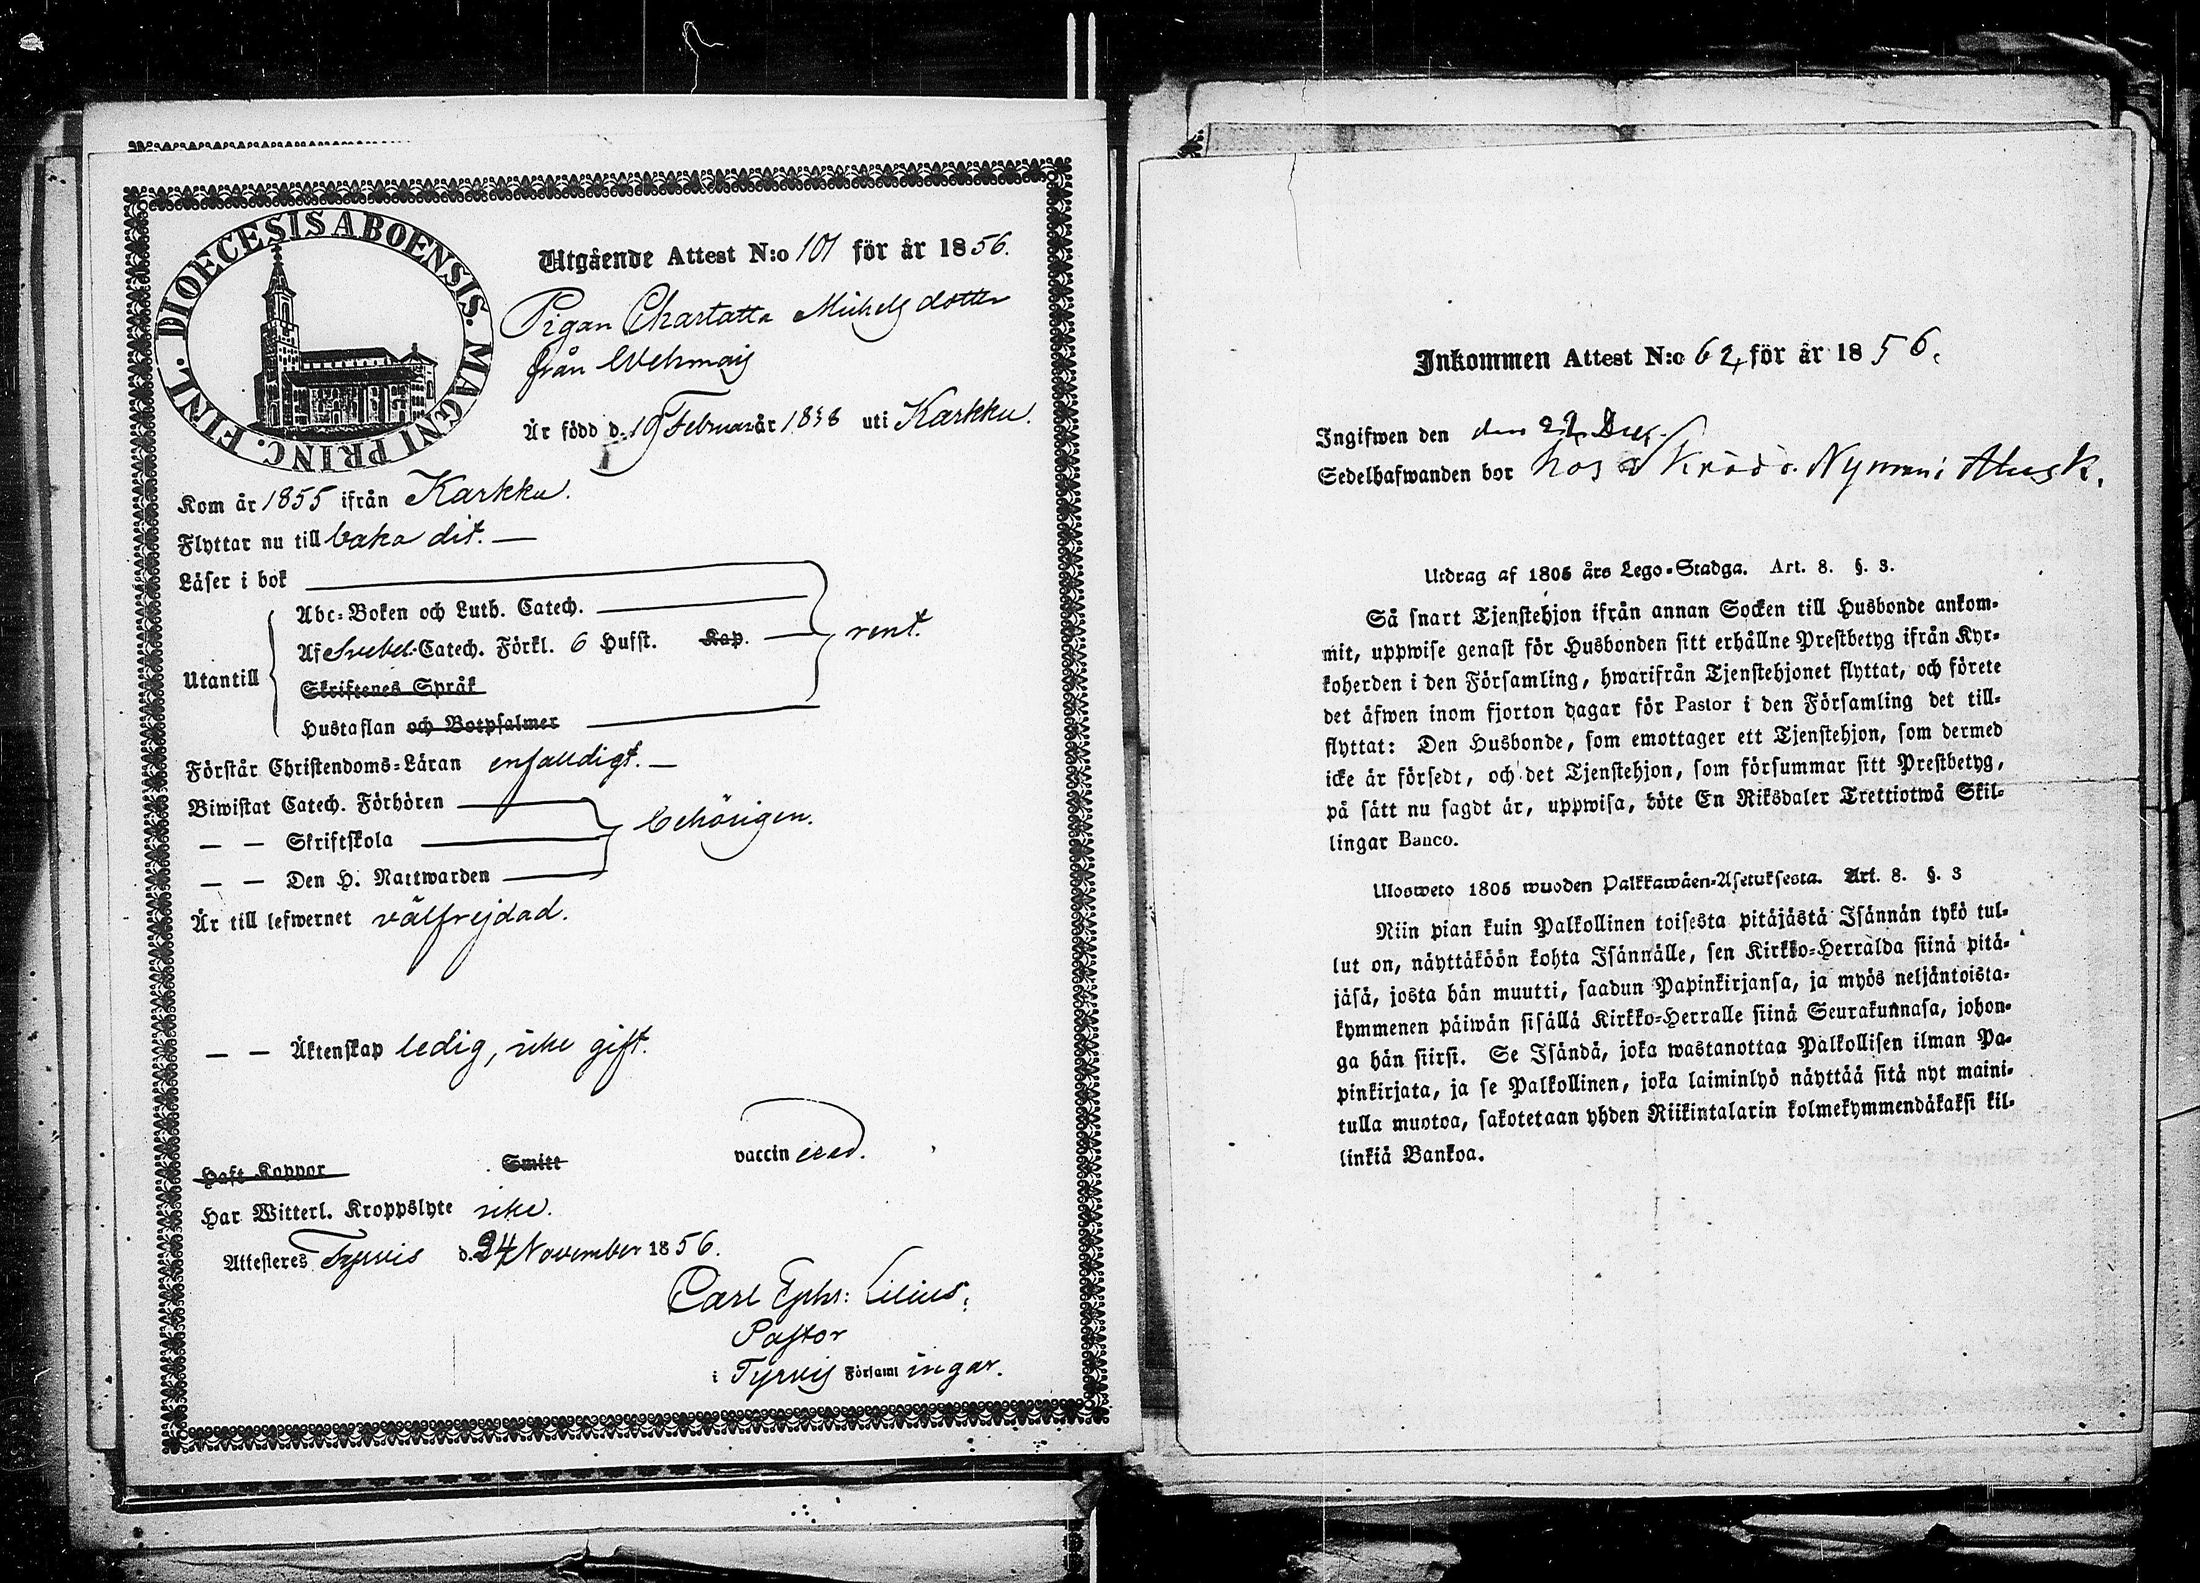 DIOECESIS ABOENSIS. MAGNI PRINC. FINL.
Utgående Attest N:o 101 för år 1856.
Pigan Charlatta Michelsdotter
från Wehmais
Är född d. 19 Februar är 1838 uti Karkku.
Kom år 1855 ifrån Karkku.
Flyttar nu till baka dit. —
Läser i bok
Abc-Boken och Luth. Catech.
Af Svebel. Catech. Förkl. 6 Hufst. Kap. — rent.
Utantill
Skriftenes Språk
Hustaflan och Botpsalmer
Förstår Christendoms-Läran enfalldigt. —
Biwistat Catech. Förhören
— — Skriftskola behörigen.
— — Den H. Nattwarden
Är till lefwernet välfrejdad.
— — Äktenskap ledig, icke gift.
Haft Koppor Smitt vaccinerad.
Har Witterl. Kroppslyte icke.
Attesteres Tyrvis d. 24 November 1856.
Carl Ephr: Lilius.
Pastor
i Tyrvis Församl ingar.
Inkommen Attest N:o 62, för år 1856.
Ingifwen den den
Sedelhafwanden bor hos
Utdrag af 1805 års Lego-Stadga. Art. 8. §. 3.
Så snart Tjenstehjon ifrån annan Socken till Husbonde ankom-
mit, uppwise genast för Husbonden sitt erhållne Prestbetyg ifrån Kyr-
koherden i den Församling, hwarifrån Tjenstehjonet flyttat, och förete
det äfwen inom fjorton dagar för Pastor i den Församling det till-
flyttat: Den Husbonde, som emottager ett Tjenstehjon, som dermed
icke är försedt, och det Tjenstehjon, som försummar sitt Prestbetyg,
på sätt nu sagdt är, uppwisa, böte En Riksdaler Trettiotwå Skil-
lingar Banco.
Ulosweto 1805 wuoden Palkkawäen-Asetuksesta. Art. 8. §. 3
Niin pian kuin Palkollinen toisesta pitäjästä Isännän tykö tul-
lut on, näyttäköön kohta Isännälle, sen Kirkko-Herralda siinä pitä-
jäsä, josta hän muutti, saadun Papinkirjansa, ja myös neljäntoista-
kymmenen päiwän sisällä Kirkko-Herralle siinä Seurakunnasa, johon-
ga hän siirsi. Se Isändä, joka wastanottaa Palkollisen ilman Pa-
pinkirjata, ja se Palkollinen, joka laiminlyö näyttää sitä nyt maini-
tulla muotoa, sakotetaan yhden Riikintalarin kolmekymmendäkaksi kil-
linkiä Bankoa.